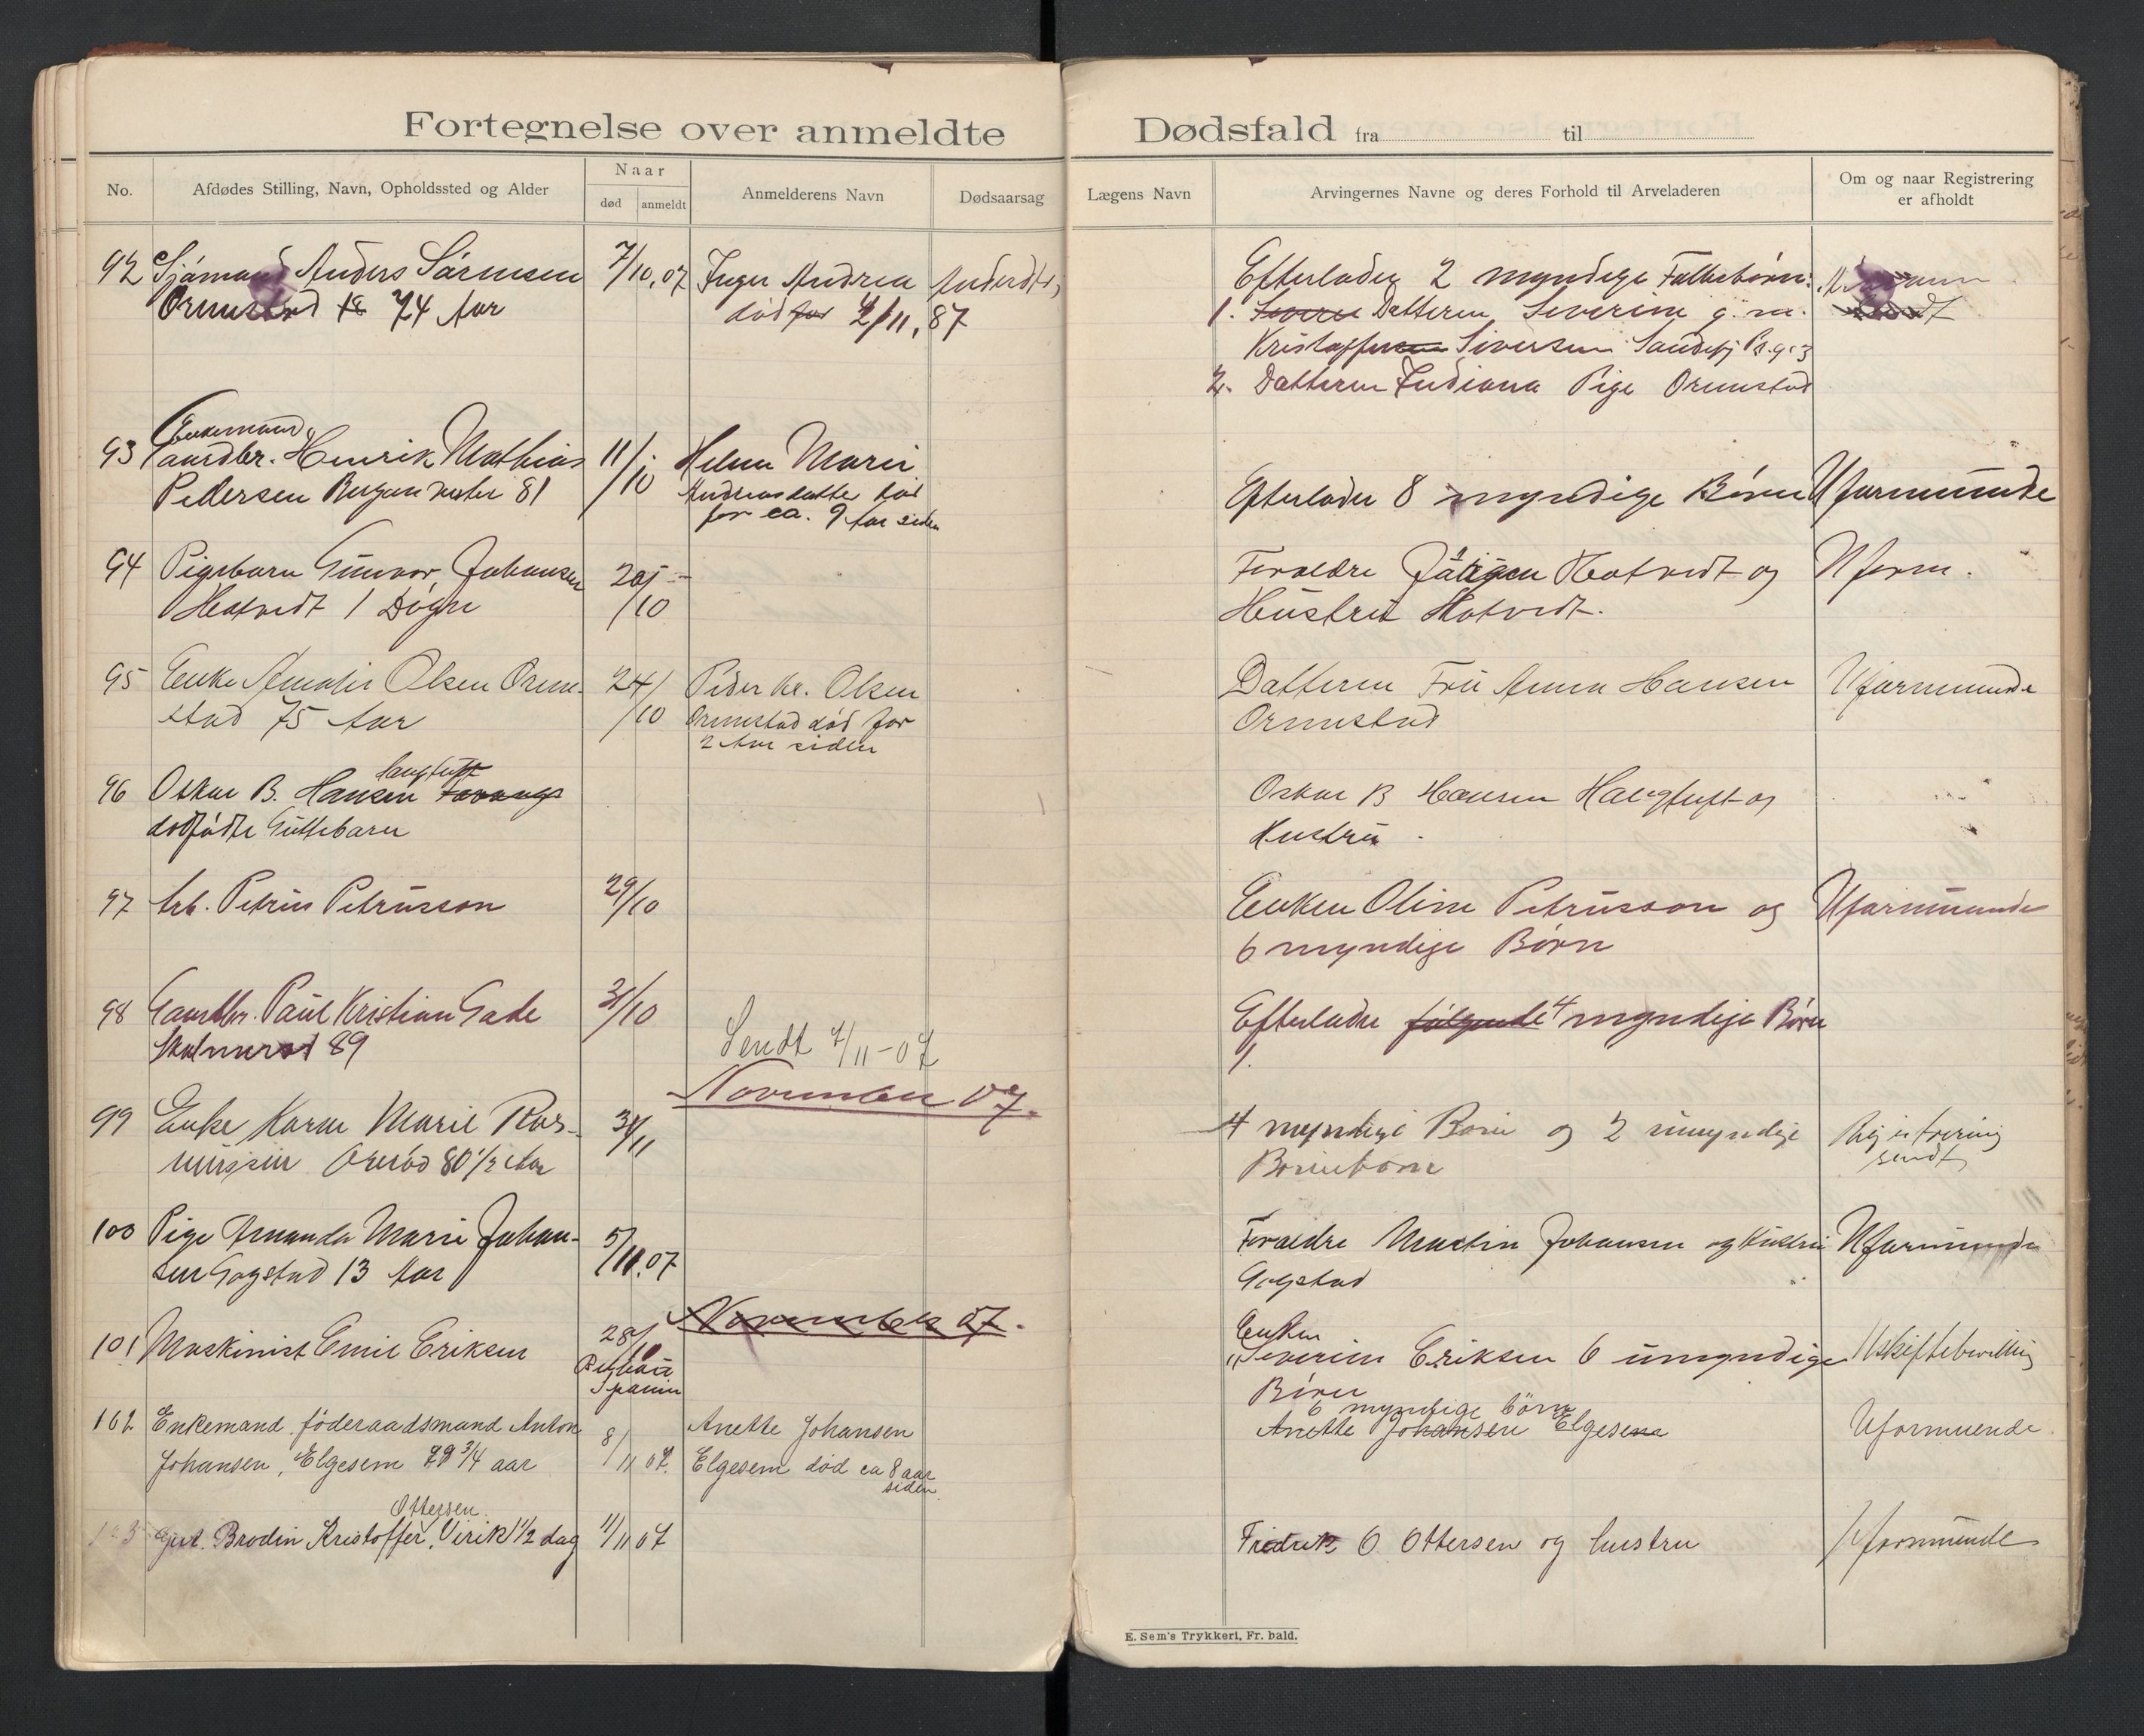 Fortegnelse over anmeldte Dødsfald fra til
No.
Afdødes Stilling, Navn, Opholdssted og Alder
Naar
død
anmeldt
Anmelderens Navn
Dødsaarsag
Lægens Navn
Arvingernes Navne og deres Forhold til Arveladeren
Om og naar Registrering
er afholdt
92 Sjømand Anders Sørensen 7/10.07 Inger Andrea
Ormestad 74 Aar død 2/11, 87
Efterlader 2 myndige Fællesbørn:
1. Datteren Severine g. m.
Siversen Sandefj
2. Datteren Indiana Pige Ormestad
Enkemand
93 Gaardbr. Henrik Mathias 11/10 Helene Marie
Pedersen Bergan vestre 81 Andreasdatter død
for ca. 9 Aar siden
Efterlader 8 myndige Børn Uformuende
94 Pigebarn Gunvor Johansen 20/10
Hotvedt 1 Døgn
Forældre Jørgen Hotvedt og Uform.
Hustru Hotvedt.
95 Enke Amalie Olsen Orme- 24/10 Peder Kr. Olsen
stad 75 Aar Ormestad død for
2 Aar siden
Datteren Fru Anna Hansen Uformuende
Ormestad
Haugtuft
96 Oskar B. Hansen
dødfødte Guttebarn
Oskar B Hansen Haugtuft og
Hustru.
97 Arb. Petrus Petrusson 29/10
Enken Oline Petrusson og Uformuende
6 myndige Børn
98 Gaardbr. Paul Kristian Gade 31/10
89
Efterlader følgende 4 myndige Børn
1.
Sendt 7/11-07
November 07.
99 Enke Karen Marie Ras-
mussen 80 1/2 Aar
4 myndige Børn og 2 umyndige Registrering
Børnebørn sendt
100 Pige Amanda Marie Johan- 5/11.07
sen Gogstad 13 Aar
Forældre Martin Johansen og Hustru Uformuende
Gogstad
November 07.
101 Maskinist Emil Eriksen 28/
Spanien
Enken
Severine Eriksen 6 umyndige Uskiftebevilling
Børn
102 Enkemand føderaadsmand Anton 8/11 07. Anette Johansen
Johansen, Elgesem 79 3/4 aar Elgesem død ca 8 aar
siden.
6 myndige børn
Anette Johansen Elgesem Uformuende
Ottersen
103 Gut. Brodin Kristoffer, Virik 1 1/2 dag 11/11 07
Fredrik O Ottersen og hustru Uformuende
E. Sem's Trykkeri, Fr. hald.